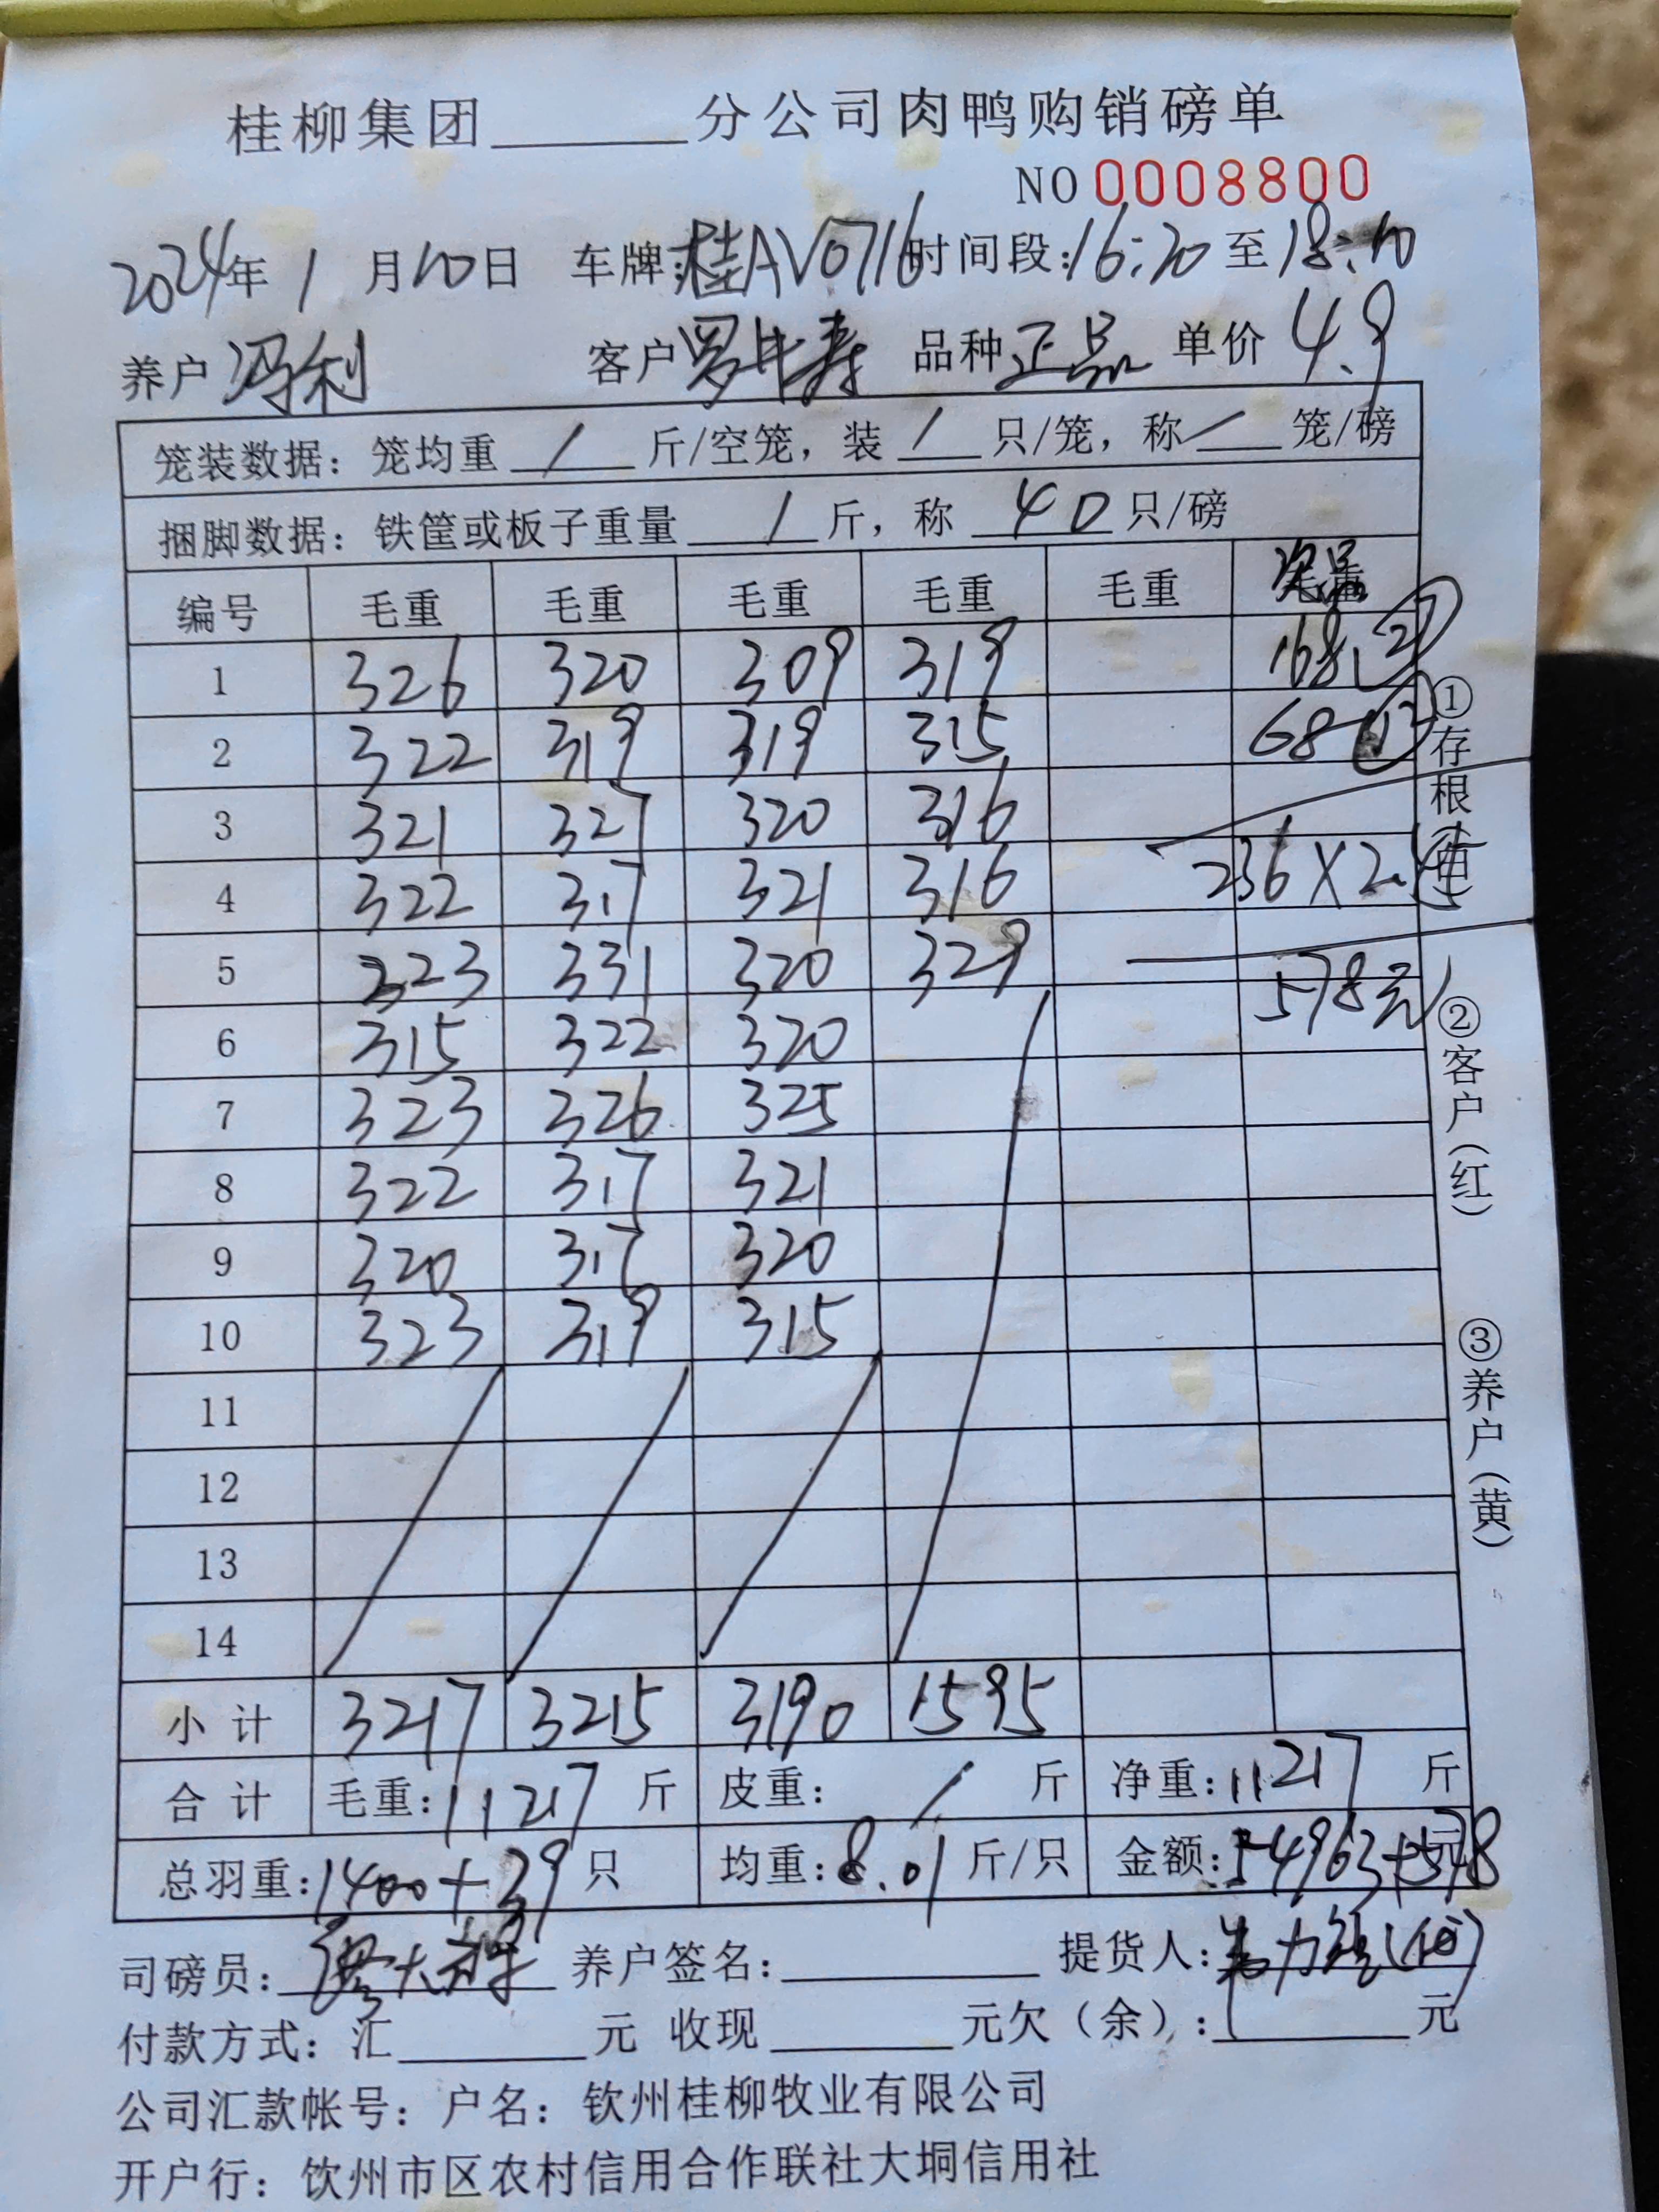 桂柳集团______分公司肉鸭购销磅单
NO 0008800
2024年 1 月 10 日 车牌:桂AV0716 时间段:16:20 至 18:10
养户 冯利 客户 罗牛寿 品种 正品 单价 4.9
笼装数据：笼均重 / 斤/空笼，装 / 只/笼，称 / 笼/磅
捆脚数据：铁筐或板子重量 / 斤，称 40 只/磅
编号 毛重 毛重 毛重 毛重 毛重 次品
1 326 320 309 319 168
2 322 319 319 315 68
3 321 327 320 316
4 322 317 321 316 236×2.45
5 323 331 320 329 578元
6 315 322 320
7 323 326 325
8 322 317 321
9 320 317 320
10 323 319 315
11
12
13
14
小 计 3217 3215 3190 1595
合 计 毛重:11217 斤 皮重: / 斤 净重:11217 斤
总羽重:1400+39 只 均重:8.01 斤/只 金额:54963+578元
司磅员: 养户签名:______ 提货人:
付款方式：汇______元 收现______元欠（余）:______元
公司汇款帐号：户名：钦州桂柳牧业有限公司
开户行：饮州市区农村信用合作联社大垌信用社
①存根（白）
②客户（红）
③养户（黄）